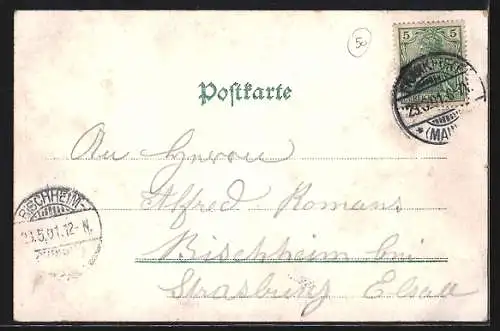 50
5 5
Postkarte
(MAIN)
An Herrn
Alfred Romans
BISCHHEIM
23.5.01.12-N.
Bischheim bei
Strasburg Elsass